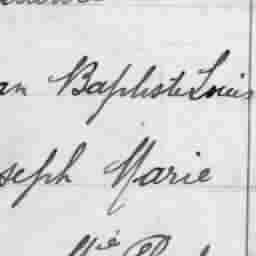 an Baptiste Louis
seph Marie